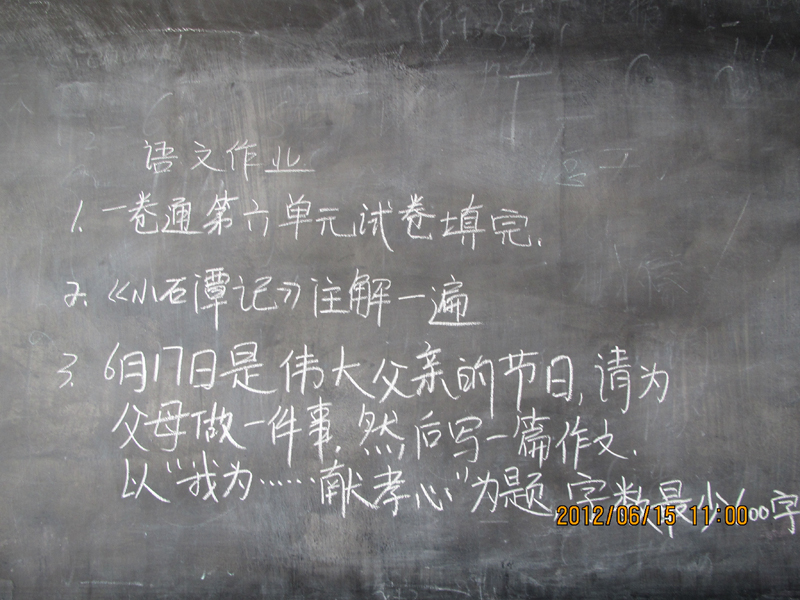 语文作业
1. 一卷通第六单元试卷填完.
2. 《小石潭记》注解一遍
3. 6月17日是伟大父亲的节日,请为
父母做一件事,然后写一篇作文.
以“我为……献孝心”为题,字数最少600字
2012/06/15 11:00